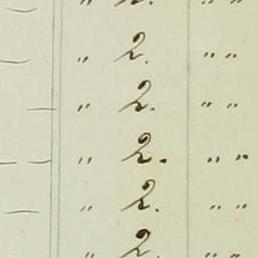 " 2. " "
" 2. " "
— " 2. " "
— — " 2. " "
— " 2. " "
" 2. " "